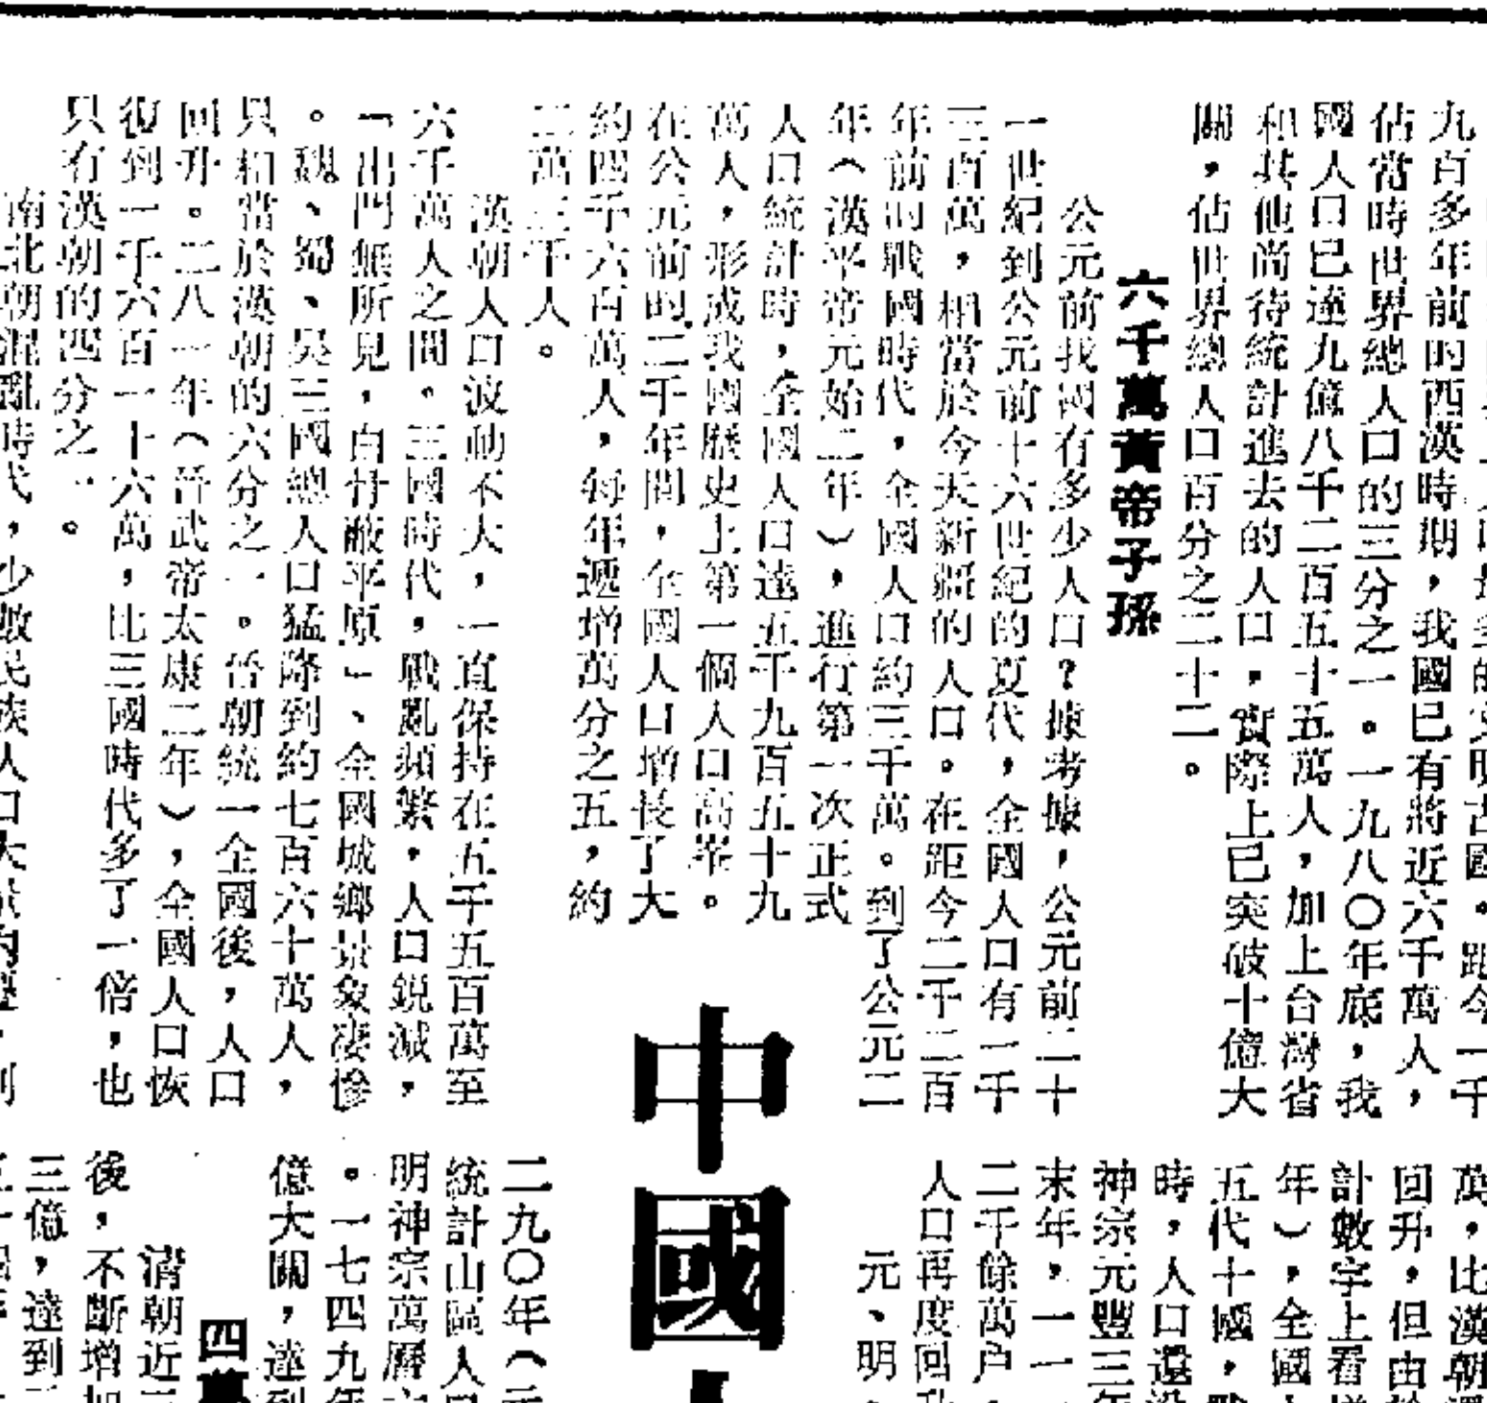 九百多年前的西漢時期，我國已有將近六千萬人，
佔當時世界總人口的三分之一。一九八〇年底，我
國人口已達九億八千二百五十五萬人，加上台灣省
和其他尚待統計進去的人口，實際上已突破十億大
關，佔世界總人口百分之二十二。
六千萬黃帝子孫
公元前我國有多少人口？據考據，公元前二十
一世紀到公元前十六世紀的夏代，全國人口有一千
三百萬，相當於今天新疆的人口。在距今二千二百
年前的戰國時代，全國人口約三千萬。到了公元二
年（漢平帝元始二年），進行第一次正式
人口統計時，全國人口達五千九百五十九
萬人，形成我國歷史上第一個人口高峯。
在公元前的二千年間，全國人口增長了大
約四千六百萬人，每年遞增萬分之五，約
二萬三千人。
漢朝人口波動不大，一直保持在五千五百萬至
六千萬人之間。三國時代，戰亂頻繁，人口銳減，
「出門無所見，白骨蔽平原」、全國城鄉景象凄慘
。魏、蜀、吳三國總人口猛降到約七百六十萬人，
只相當於漢朝的六分之一。晉朝統一全國後，人口
回升。二八一年（晉武帝太康二年），全國人口恢
復到一千六百一十六萬，比三國時代多了一倍，也
只有漢朝的四分之一。
南北朝混亂時代，少數民族人口大量內遷，到
中國
萬，比漢朝還
回升，但由於
計數字上看增
年），全國
五代十國，戰
時，人口還沒
神宗元豐三年
末年，一一
二千餘萬戶
人口再度回
元、明
二九〇年（元
統計山區人口
明神宗萬曆
。一七四九年
億大關，達到
四萬
清朝近
後，不斷增加
三億，達到